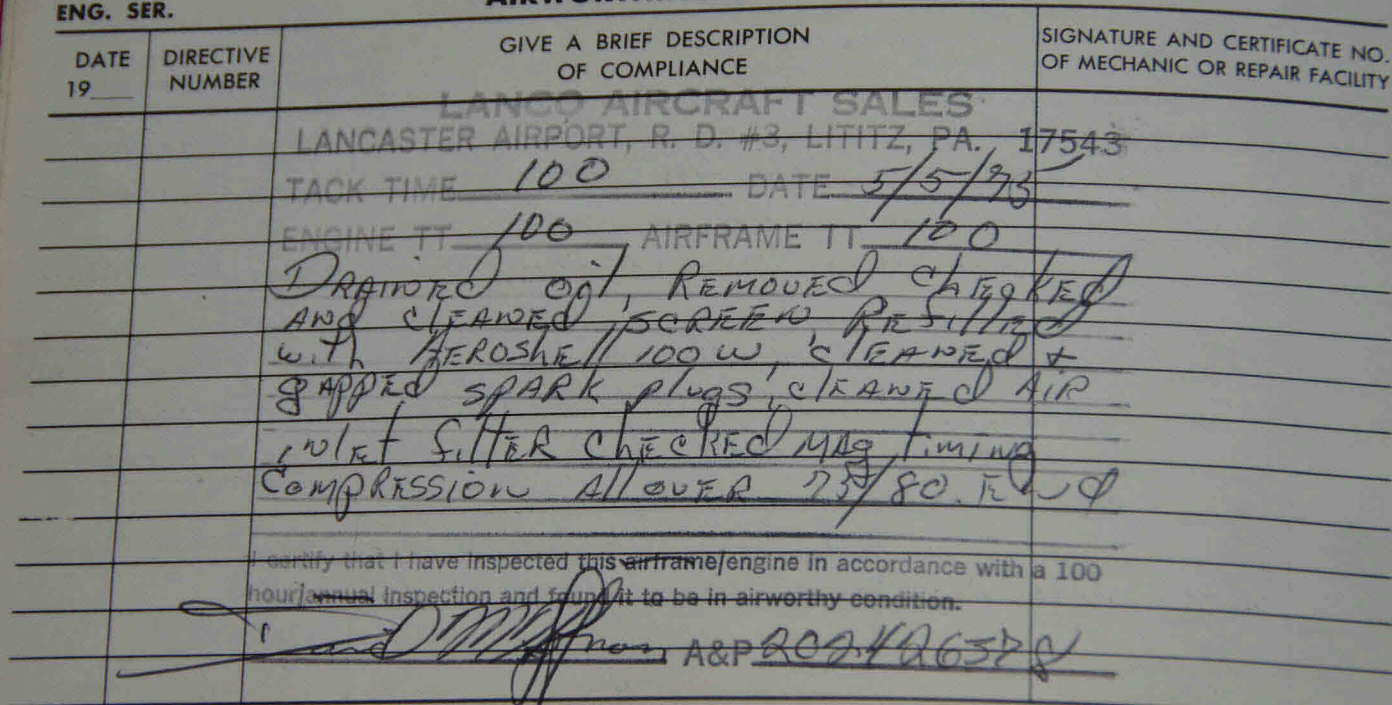 ENG. SER.
DATE
19
DIRECTIVE
NUMBER
GIVE A BRIEF DESCRIPTION
OF COMPLIANCE
SIGNATURE AND CERTIFICATE NO.
OF MECHANIC OR REPAIR FACILITY
LANCO AIRCRAFT SALES
LANCASTER AIRPORT, R. D. #3, LITITZ, PA. 17543
TACK TIME 100 DATE 5/5/75
ENGINE TT 100 AIRFRAME TT 100
DRAINED oil, REMOVED ChECKED
AND CLEANED SCREEN, REfillED
with AEROShEll 100W, clEANED &
gAPPED SPARK plugs, clEANED AiR
iNlEt filtER ChECKED MAg timing
COMPRESSiON All OVER 75/80. END
I certify that I have inspected this airframe/engine in accordance with a 100
hour/annual inspection and found it to be in airworthy condition.
A&P 202426378